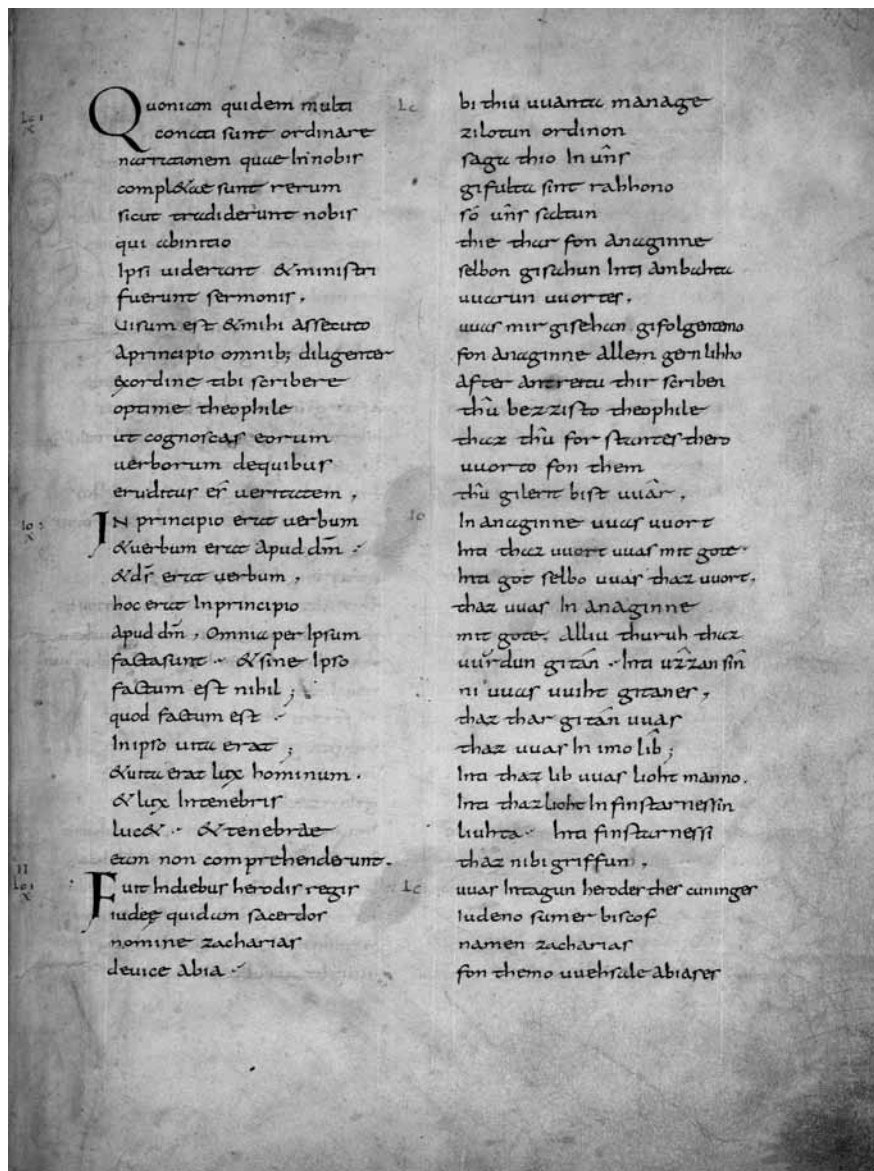 Quoniam quidem multi
conati sunt ordinare
narrationem quae In nobis
compl&ae sunt rerum
sicut tradiderunt nobis
qui abinitio
Ipsi uiderunt &ministri
fuerunt sermonis,
Uisum est &mihi assecuto
Aprincipio omnib; diligenter
exordine tibi scribere
optime theophile
ut cognoscas eorum
uerborum dequibus
eruditus es ueritatem,
IN principio erat uerbum
&uerbum erat Apud dm̄
&ds̄ erat uerbum,
hoc erat Inprincipio
Apud dm̄, Omnia per Ipsum
factasunt &sine Ipso
factum est nihil;
quod factum est
Inipso uita erat;
&uita erat lux hominum.
& lux Intenebris
luc& &tenebrae
eam non comprehenderunt.
Fuit Indiebus herodis regis
iudeę quidam sacerdos
nomine zacharias
deuice Abia
Lc
bi thiu uuanta manage
zilotun ordinon
saga thio In uns
gifulta sint rahhono
so uns saltun
thie thar fon Anaginne
selbon gisahun Inti Ambahta
uuarun uuortes,
uuas mir gisehan gifolgentemo
fon Anaginne Allem gernlihho
After Antreitu thir scriben
thû bezzisto theophile
thaz thû forstantes thero
uuorto fon them
thû gilerit bist uuâr,
Io
In anaginne uuas uuort
Inti thaz uuort uuas mit gote
Inti got selbo uuas thaz uuort.
thaz uuas In anaginne
mit gote. Alliu thuruh thaz
uuŕdun gitán Inti ûzzan sîn
ni uuas uuiht gitanes,
thaz thar gitán uuas
thaz uuas In imo lîb;
Inti thaz lib uuas lioht manno.
Inti thaz lioht In finstarnessin
liuhta Inti finstarnessi
thaz nibigriffun,
Lc
uuas Intagun herodes thes cuninges
Iudeno sumer biscof
namen zacharias
fon themo uuehsale Abiases